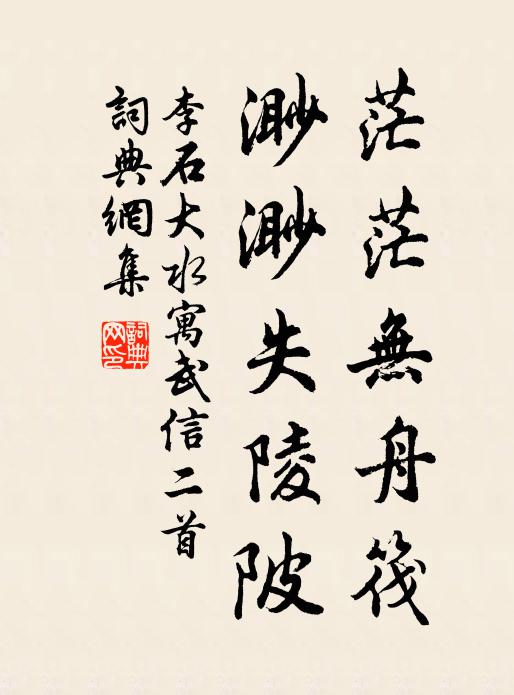 茫茫無舟筏
渺渺失陵陂
李石大水寓武信二首
詞典網集
詞典網印